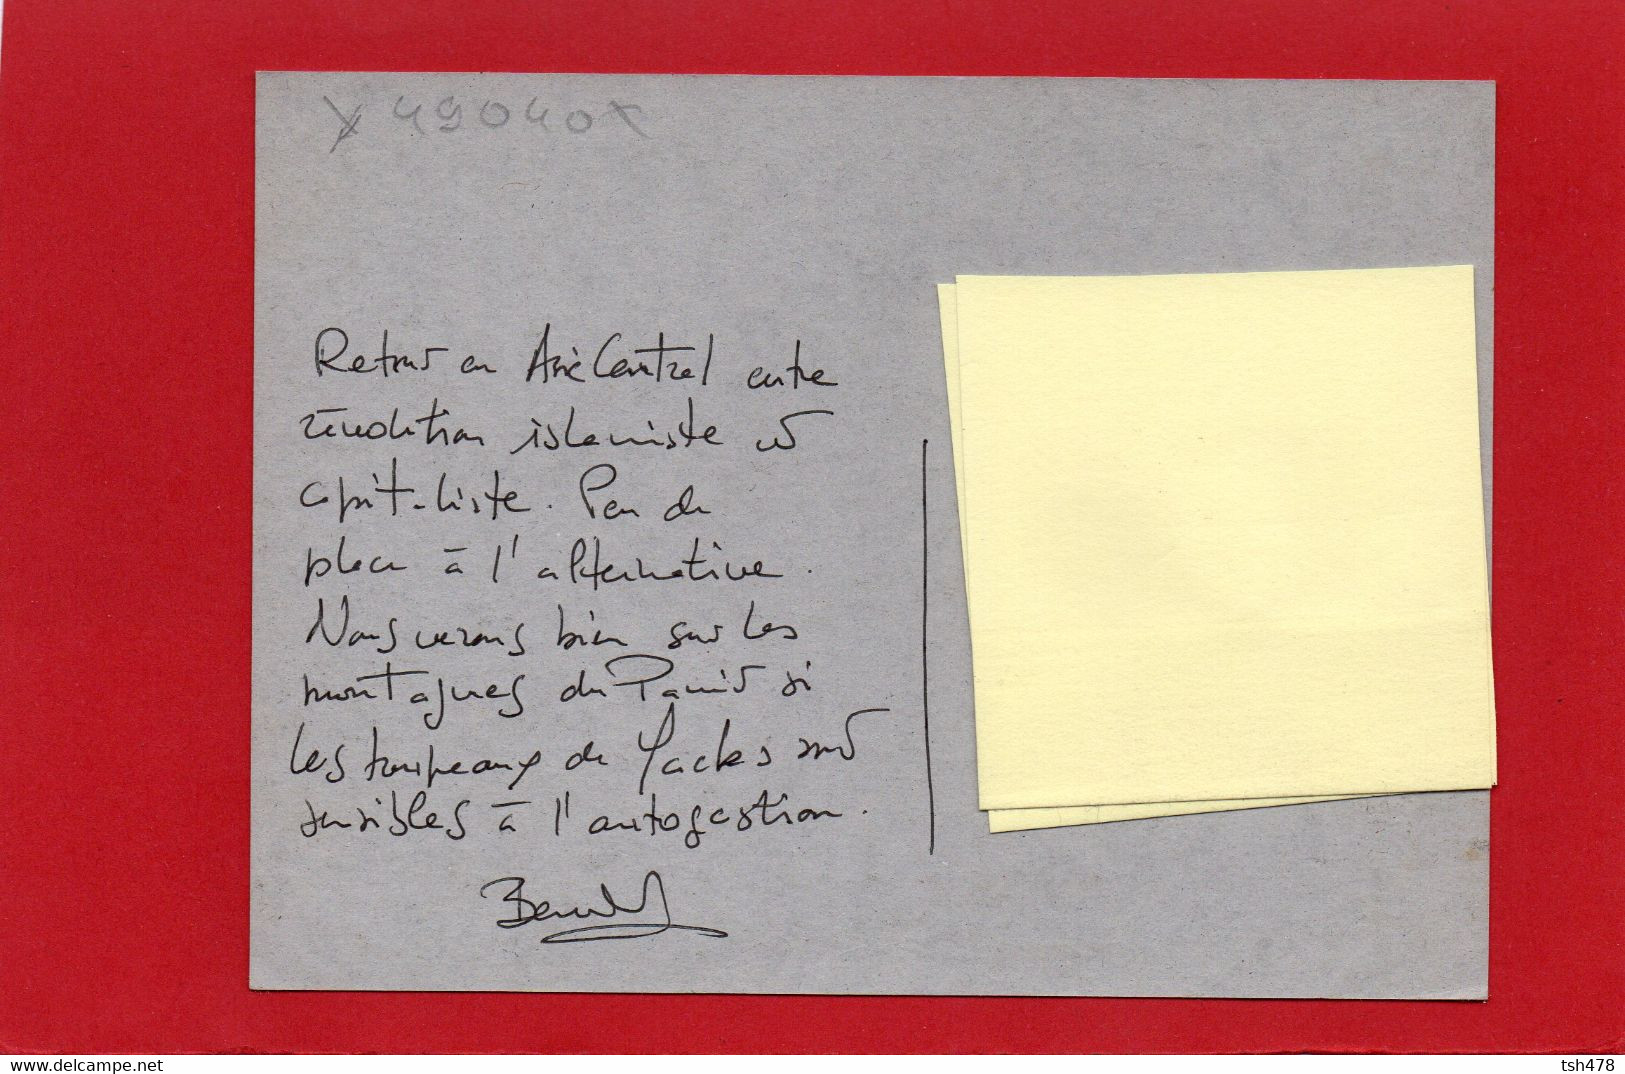 x 49040 x
Retour en Asie Central entre
révolution islamiste et
capitaliste. Peu de
place à l'alternative.
Nous verons bien sur les
montagnes du Pamir si
les troupeaux de Yacks sont
sensibles à l'autogestion.
https://www.delcampe.net
tsh478